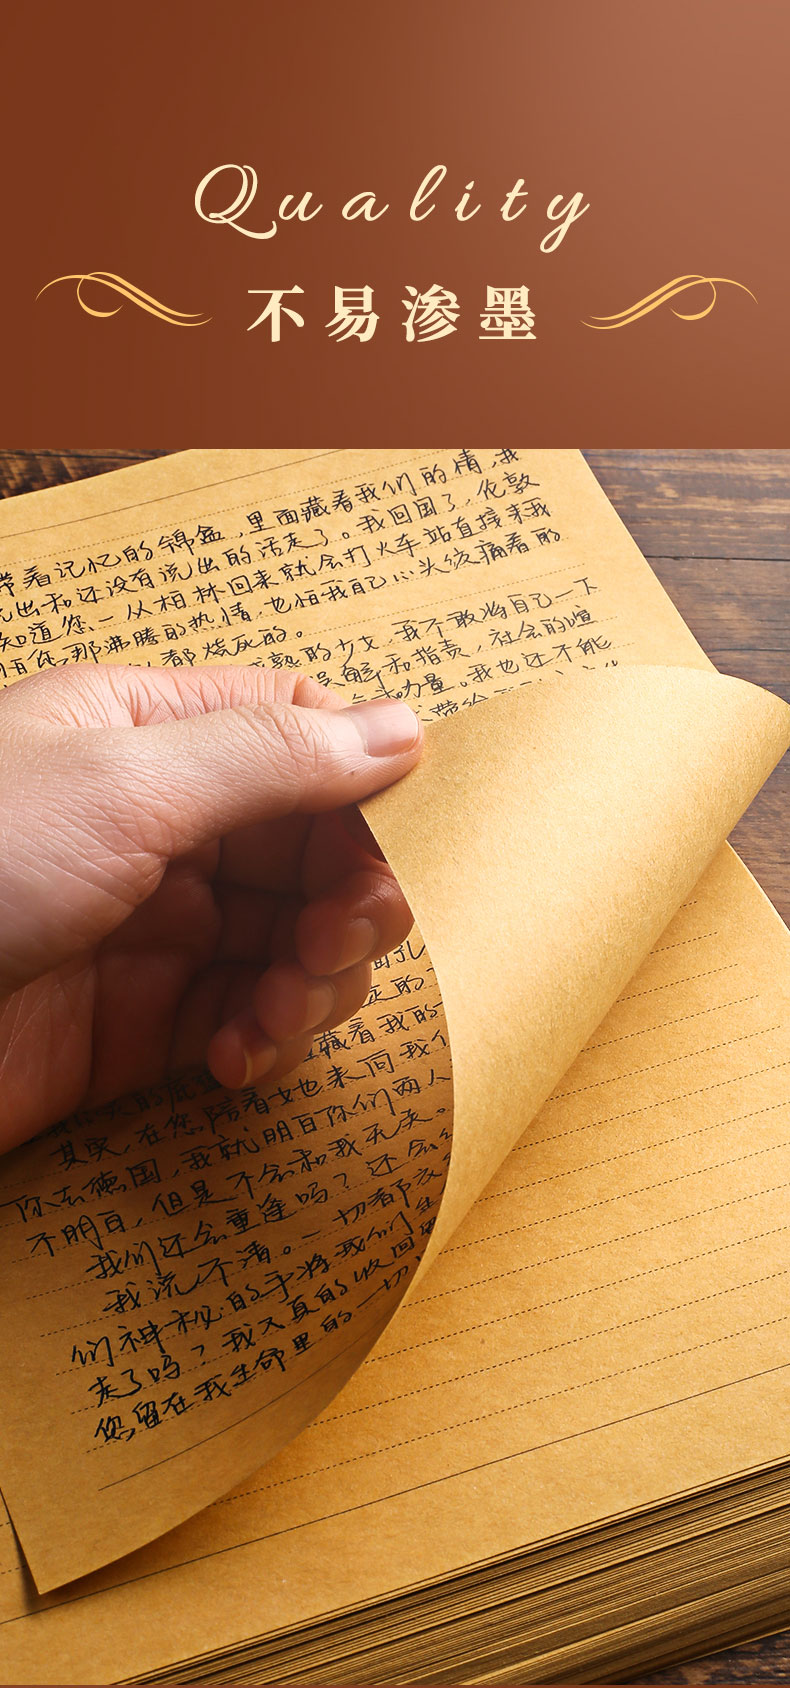 Quality
不易渗墨
带着记忆的锦盒，里面藏着我们的情，我
出和还没有流出的活走了。我回国了，伦敦
知道您、一从柏林回来就会打火车站直接来我
那沸腾的热情，也怕我自己心头绞痛着的
都烧死的。
熟的少女，我不敢将自己一下
误解和指责，社会的喧
力量。我也还不能
带给
面孔
定的
藏着我的
其实，在您陪着她来问我们
你去德国，我就明白你们两人
不明白，但是不会和我无关。
我们还会重逢吗？还会
我流不清。一切都
们神秘的手将我们
走了吗？我天真的收回
您留在我生命里的一切